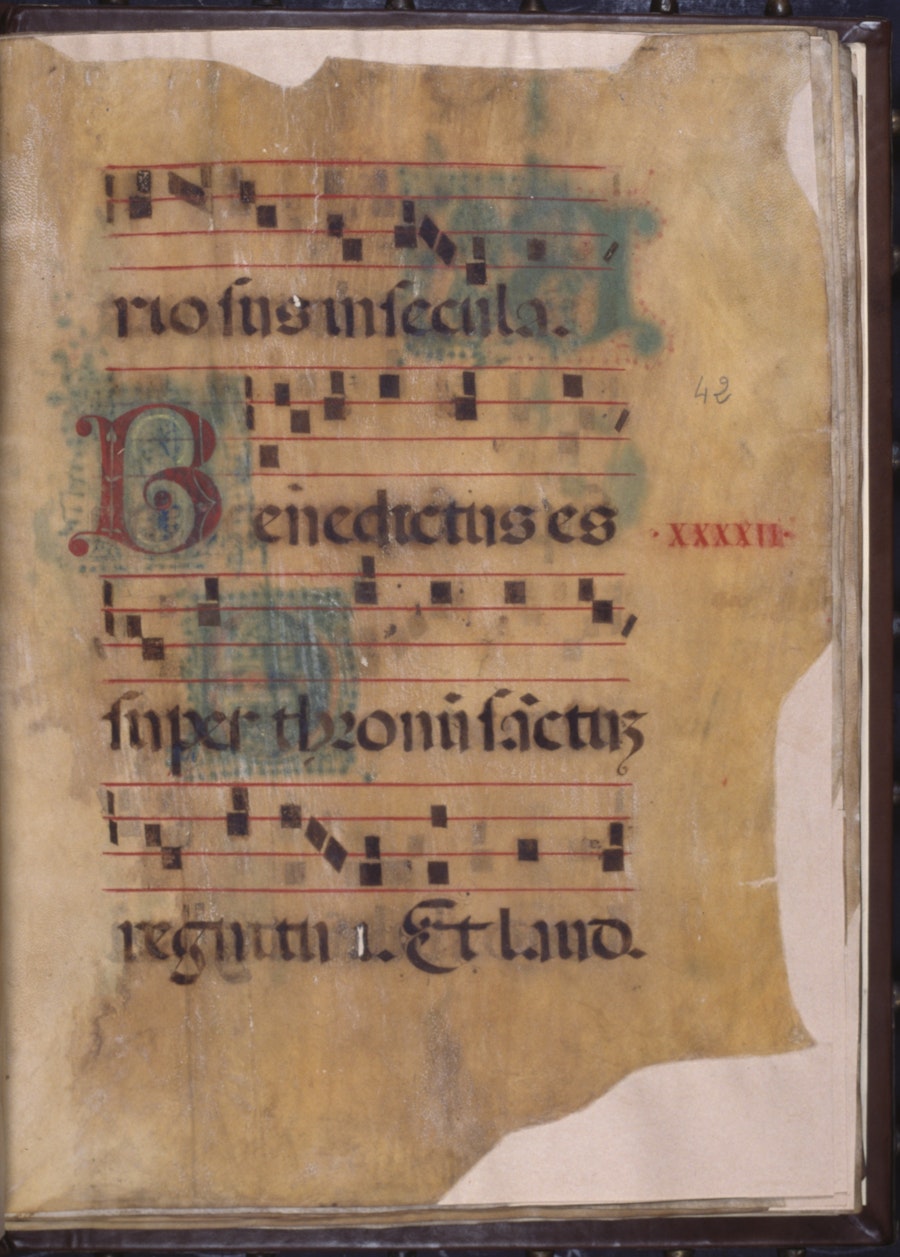 rio sus in secula.
42
Benedictus es
·XXXXII·
super thronū sāctuʒ
regni tui. Et laud.